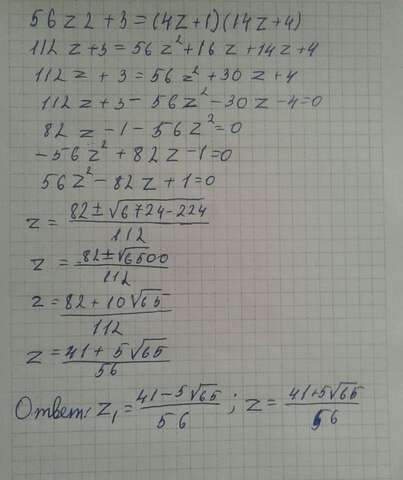 56z2+3=(4z+1)(14z+4)
112z+3=56z²+16z+14z+4
112z+3=56z²+30z+4
112z+3-56z²-30z-4=0
82z-1-56z²=0
-56z²+82z-1=0
56z²-82z+1=0
z=82±√6724-224/112
z=82±√6500/112
z=82+10√65/112
z=41+5√65/56
Ответ: z₁=41-5√65/56; z=41+5√65/56